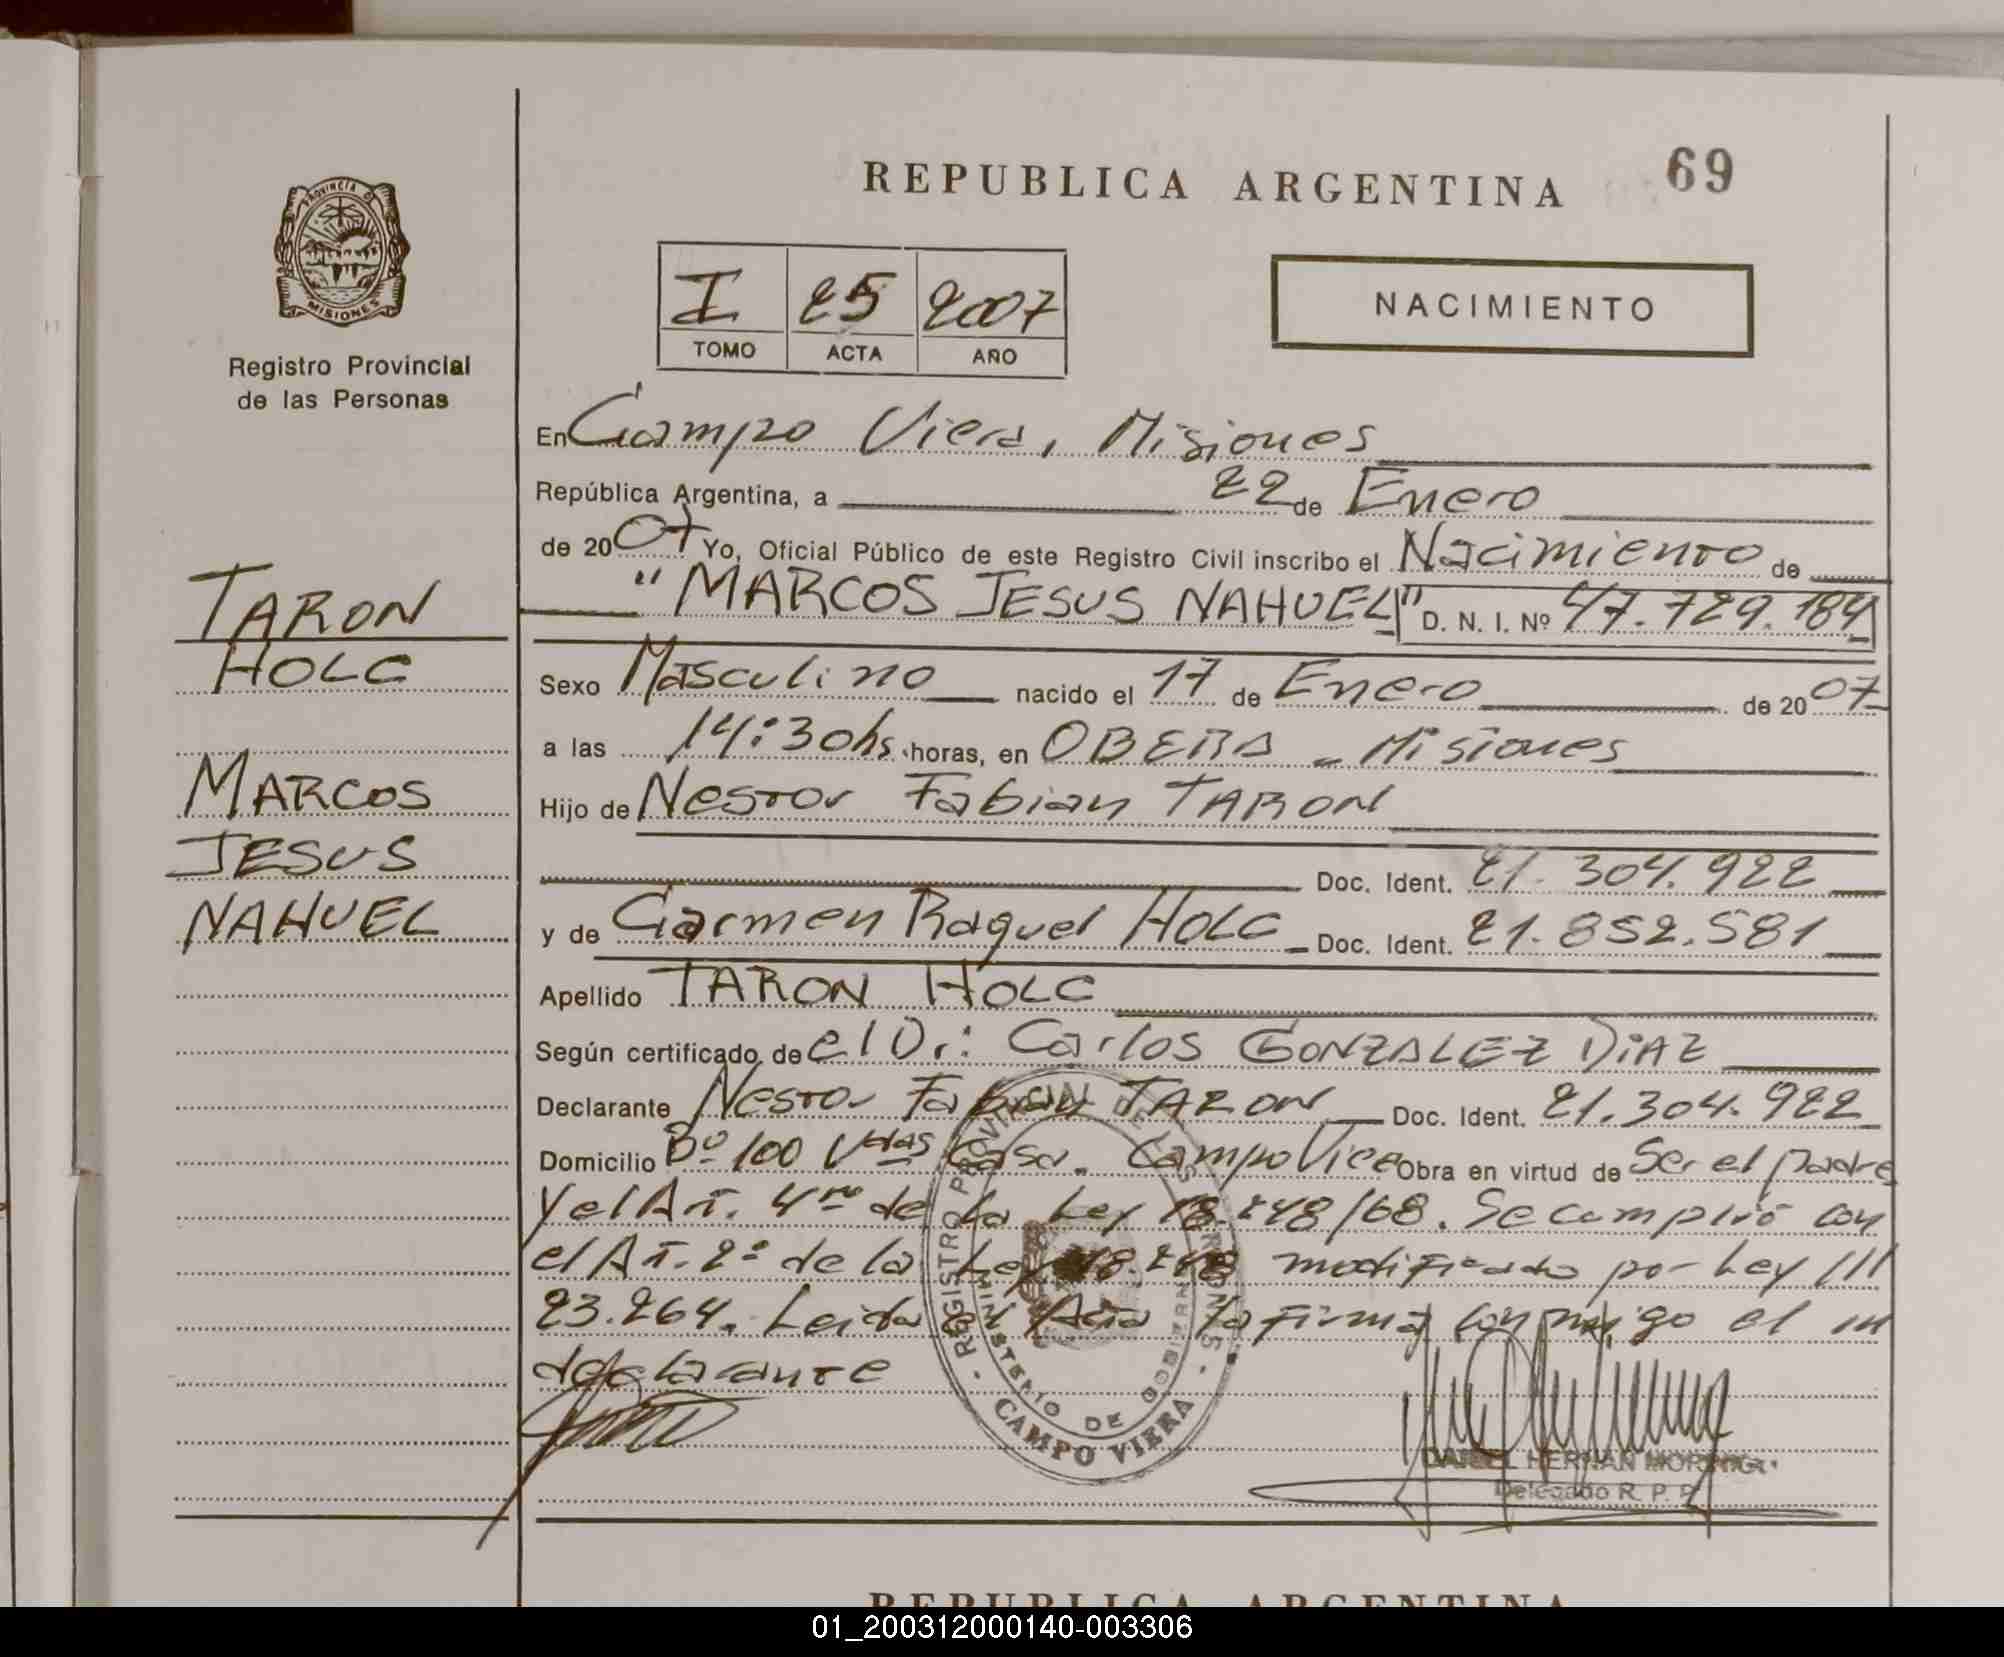 REPUBLICA ARGENTINA 69
PROVINCIA DE
MISIONES
Registro Provincial
de las Personas
I 25 2007
TOMO ACTA AÑO
NACIMIENTO
En Campo Viera, Misiones
República Argentina, a 22 de Enero
de 2007 Yo, Oficial Público de este Registro Civil inscribo el Nacimiento de
"MARCOS JESUS NAHUEL" D. N. I. Nº 47.729.184
TARON
HOLC
MARCOS
JESUS
NAHUEL
Sexo Masculino nacido el 17 de Enero de 2007
a las 14:30hs. horas, en OBERA - Misiones
Hijo de Nestor Fabian TARON
Doc. Ident. 21.304.922
y de Carmen Raquel HOLC Doc. Ident. 21.852.581
Apellido TARON HOLC
Según certificado de el Dr: Carlos GONZALEZ DIAZ
Declarante Nestor Fabian TARON Doc. Ident. 21.304.922
Domicilio Bº 100 Vdas Casa. Campo Viera Obra en virtud de Ser el padre
y el Art. 4to de la Ley 18.248/68. Se cumplió con
el Art. 2º de la Ley 18.248 modificado por Ley ///
23.264. Leida el Acta la firma conmigo el ///
declarante
REGISTRO PROVINCIAL DE LAS PERSONAS
MINISTERIO DE GOBIERNO
CAMPO VIERA
DANIEL HERNAN
Delegado R. P. P.
REPUBLICA ARGENTINA
01_200312000140-003306